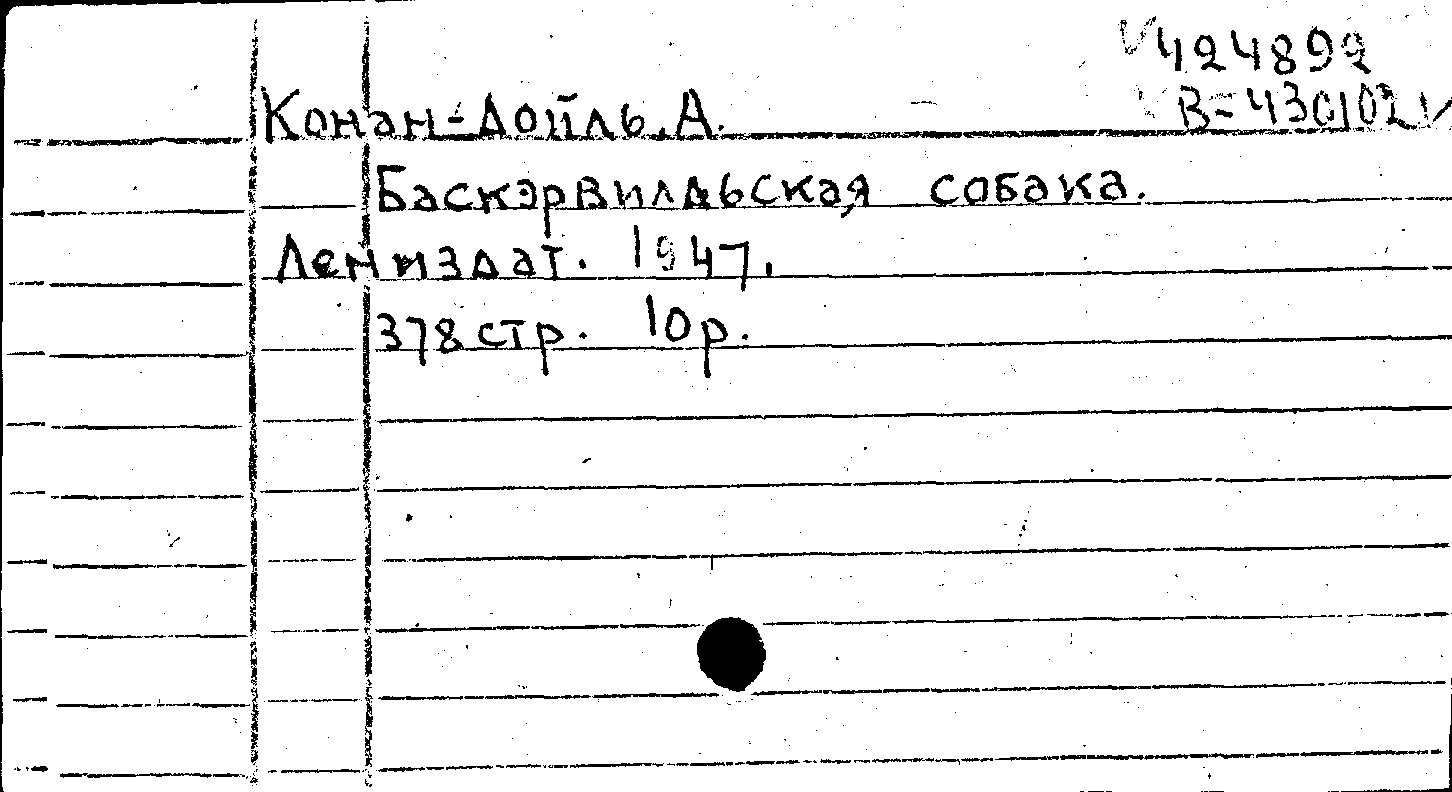 V424892
B-430102V
Конан-Дойль, А.
Баскэрвилдьская собака.
Лениздат. 1947.
378 стр. 10р.